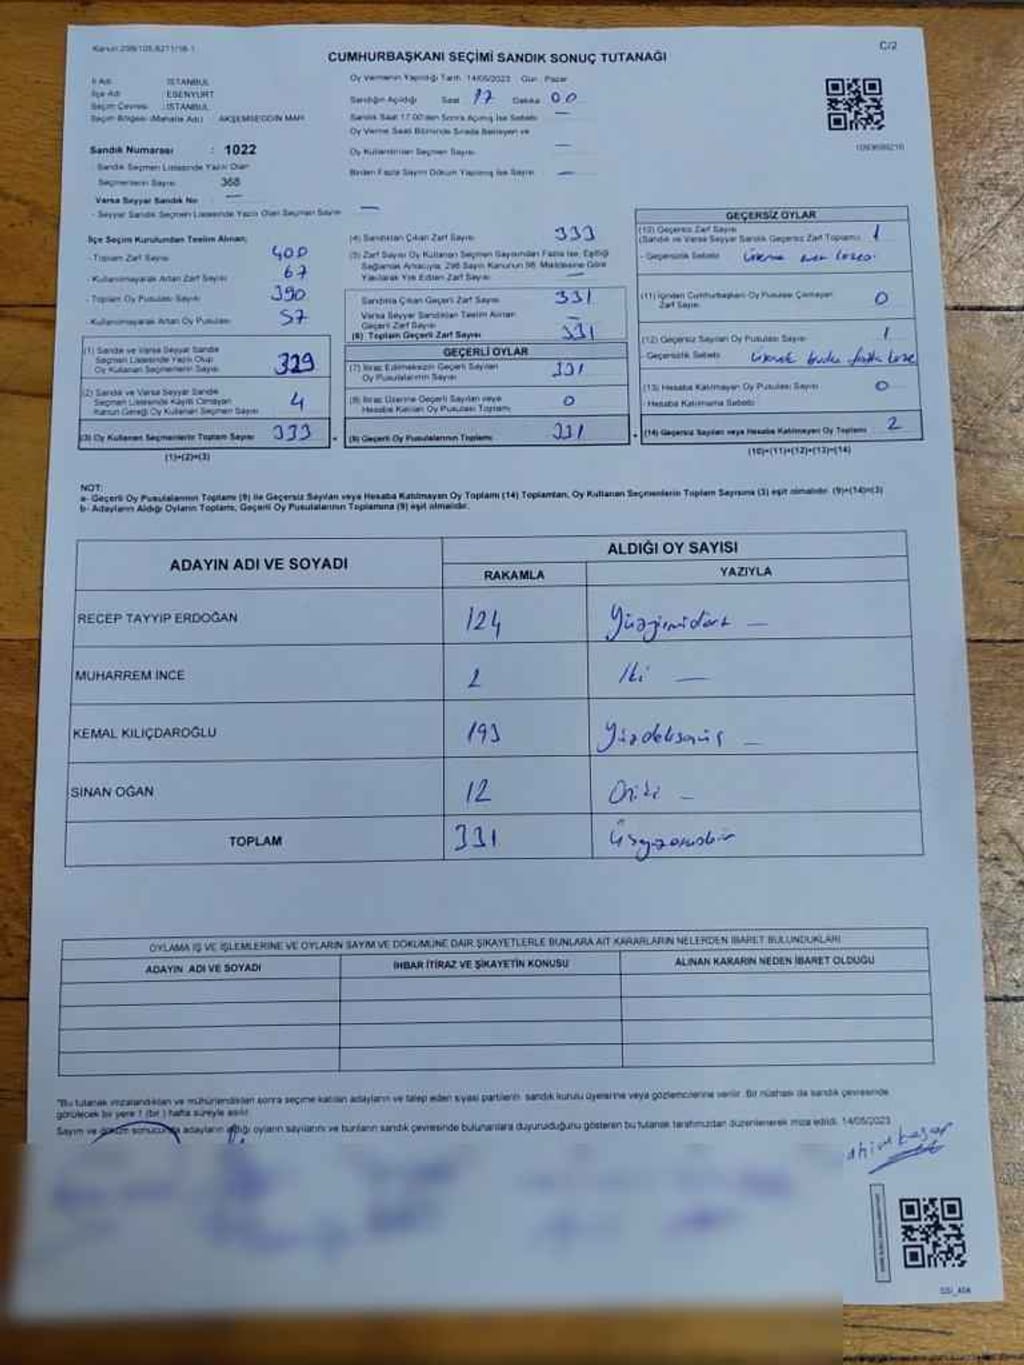 Kanun:298/105,6271/16-1
C/2
CUMHURBAŞKANI SEÇİMİ SANDIK SONUÇ TUTANAĞI
İl Adı : İSTANBUL
İlçe Adı : ESENYURT
Seçim Çevresi : İSTANBUL
Seçim Bölgesi (Mahalle Adı) : AKŞEMSEDDİN MAH.
Oy Vermenin Yapıldığı Tarih : 14/05/2023 Gün : Pazar
Sandığın Açıldığı Saat 17 Dakika 00
Sandık Saat 17.00'den Sonra Açılmış İse Sebebi —
Oy Verme Saati Bitiminde Sırada Bekleyen ve
Oy Kullandırılan Seçmen Sayısı —
Birden Fazla Sayım Döküm Yapılmış İse Sayısı —
Sandık Numarası : 1022
- Sandık Seçmen Listesinde Yazılı Olan
Seçmenlerin Sayısı 368
Varsa Seyyar Sandık No —
- Seyyar Sandık Seçmen Listesinde Yazılı Olan Seçmen Sayısı —
İlçe Seçim Kurulundan Teslim Alınan;
- Toplam Zarf Sayısı 400
- Kullanılmayarak Artan Zarf Sayısı 67
- Toplam Oy Pusulası Sayısı 390
- Kullanılmayarak Artan Oy Pusulası 57
(1) Sandık ve Varsa Seyyar Sandık
Seçmen Listesinde Yazılı Olup
Oy Kullanan Seçmenlerin Sayısı 329
(2) Sandık ve Varsa Seyyar Sandık
Seçmen Listesinde Kayıtlı Olmayan
Kanun Gereği Oy Kullanan Seçmen Sayısı 4
(3) Oy Kullanan Seçmenlerin Toplam Sayısı 333
(1)+(2)=(3)
(4) Sandıktan Çıkan Zarf Sayısı 333
(5) Zarf Sayısı Oy Kullanan Seçmen Sayısından Fazla İse, Eşitliği
Sağlamak Amacıyla, 298 Sayılı Kanunun 98. Maddesine Göre
Yakılarak Yok Edilen Zarf Sayısı —
Sandıkta Çıkan Geçerli Zarf Sayısı 331
Varsa Seyyar Sandıktan Teslim Alınan
Geçerli Zarf Sayısı —
(6) Toplam Geçerli Zarf Sayısı 331
GEÇERLİ OYLAR
(7) İtiraz Edilmeksizin Geçerli Sayılan
Oy Pusulalarının Sayısı 331
(8) İtiraz Üzerine Geçerli Sayılan veya
Hesaba Katılan Oy Pusulası Toplamı 0
(9) Geçerli Oy Pusulalarının Toplamı 331
GEÇERSİZ OYLAR
(10) Geçersiz Zarf Sayısı
(Sandık ve Varsa Seyyar Sandık Geçersiz Zarf Toplamı) 1
- Geçersizlik Sebebi
(11) İçinden Cumhurbaşkanı Oy Pusulası Çıkmayan
Zarf Sayısı 0
(12) Geçersiz Sayılan Oy Pusulası Sayısı 1
- Geçersizlik Sebebi
(13) Hesaba Katılmayan Oy Pusulası Sayısı 0
- Hesaba Katılmama Sebebi
(14) Geçersiz Sayılan veya Hesaba Katılmayan Oy Toplamı 2
(10)+(11)+(12)+(13)=(14)
NOT:
a- Geçerli Oy Pusulalarının Toplamı (9) ile Geçersiz Sayılan veya Hesaba Katılmayan Oy Toplamı (14) Toplamları, Oy Kullanan Seçmenlerin Toplam Sayısına (3) eşit olmalıdır. (9)+(14)=(3)
b- Adayların Aldığı Oyların Toplamı, Geçerli Oy Pusulalarının Toplamına (9) eşit olmalıdır.
ADAYIN ADI VE SOYADI
ALDIĞI OY SAYISI
RAKAMLA YAZIYLA
RECEP TAYYIP ERDOĞAN 124 Yüzyirmidört —
MUHARREM İNCE 2 İki —
KEMAL KILIÇDAROĞLU 193 Yüzdoksanüç —
SİNAN OĞAN 12 Oniki —
TOPLAM 331 Üçyüzotuzbir
OYLAMA İŞ VE İŞLEMLERİNE VE OYLARIN SAYIM VE DÖKÜMÜNE DAİR ŞİKAYETLERLE BUNLARA AİT KARARLARIN NELERDEN İBARET BULUNDUKLARI
ADAYIN ADI VE SOYADI İHBAR İTİRAZ VE ŞİKAYETİN KONUSU ALINAN KARARIN NEDEN İBARET OLDUĞU
*Bu tutanak imzalandıktan ve mühürlendikten sonra seçime katılan adayların ve talep eden siyasi partilerin sandık kurulu üyelerine veya gözlemcilerine verilir. Bir nüshası da sandık çevresinde
görülecek bir yere 1 (bir) hafta süreyle asılır.
Sayım ve döküm sonucunda adayların aldığı oyların sayılarını ve bunların sandık çevresinde bulunanlara duyurulduğunu gösteren bu tutanak tarafımızdan düzenlenerek imza edildi. 14/05/2023